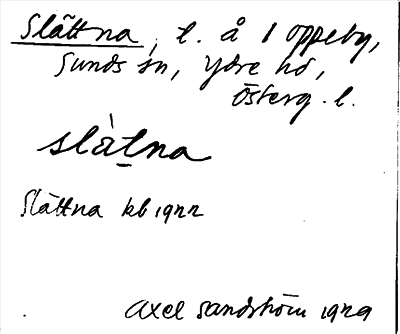 Slättna, t. å 1 Oppeby,
Sunds sn, Ydre hd,
Österg. l.
slàt̲na
Slättna kb 1922
Axel Sandström 1929